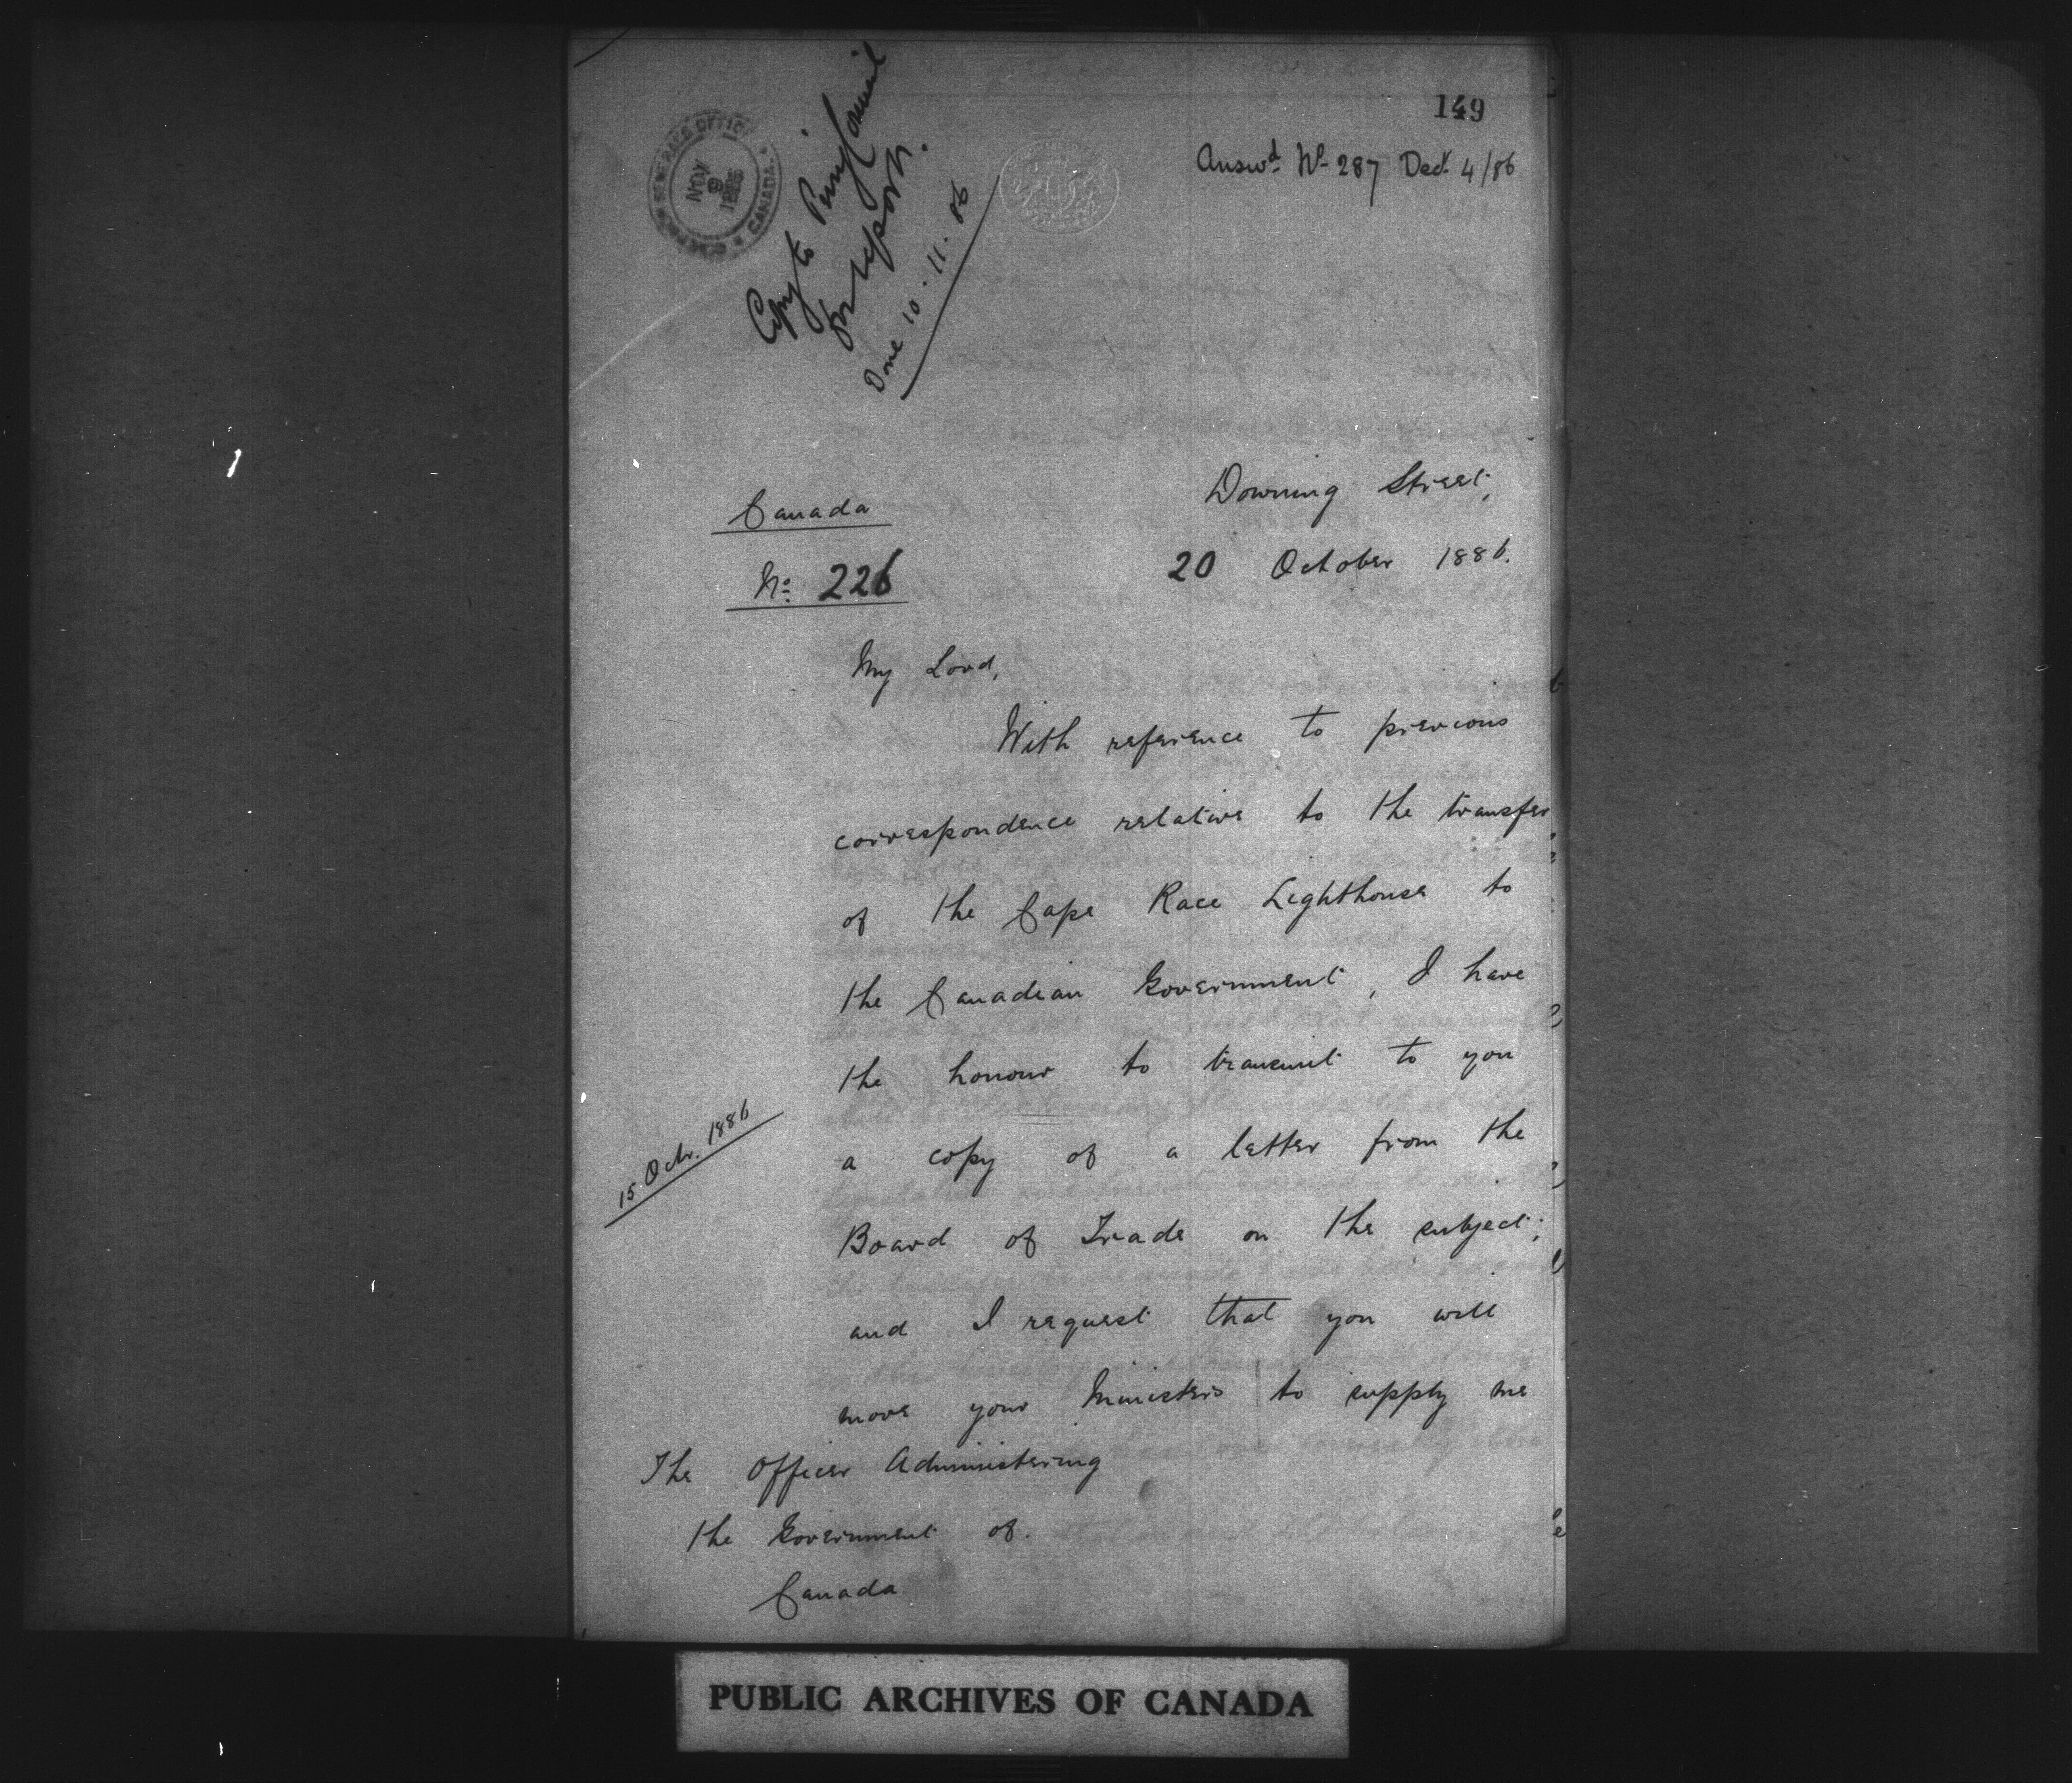 149
Answd. No. 287 Decr. 4/86
GOVERNOR GENERAL'S OFFICE
NOV 9 1886
CANADA
Copy to Privy Council
for report.
Done 10.11.86
Downing Street,
Canada
20 October 1886.
No: 226
My Lord,
With reference to previous
correspondence relative to the transfer
of the Cape Race Lighthouse to
the Canadian Government, I have
the honour to transmit to you
15 Octr. 1886
a copy of a letter from the
Board of Trade on the subject;
and I request that you will
move your Ministers to supply me
The Officer Administering
the Government of.
Canada
PUBLIC ARCHIVES OF CANADA